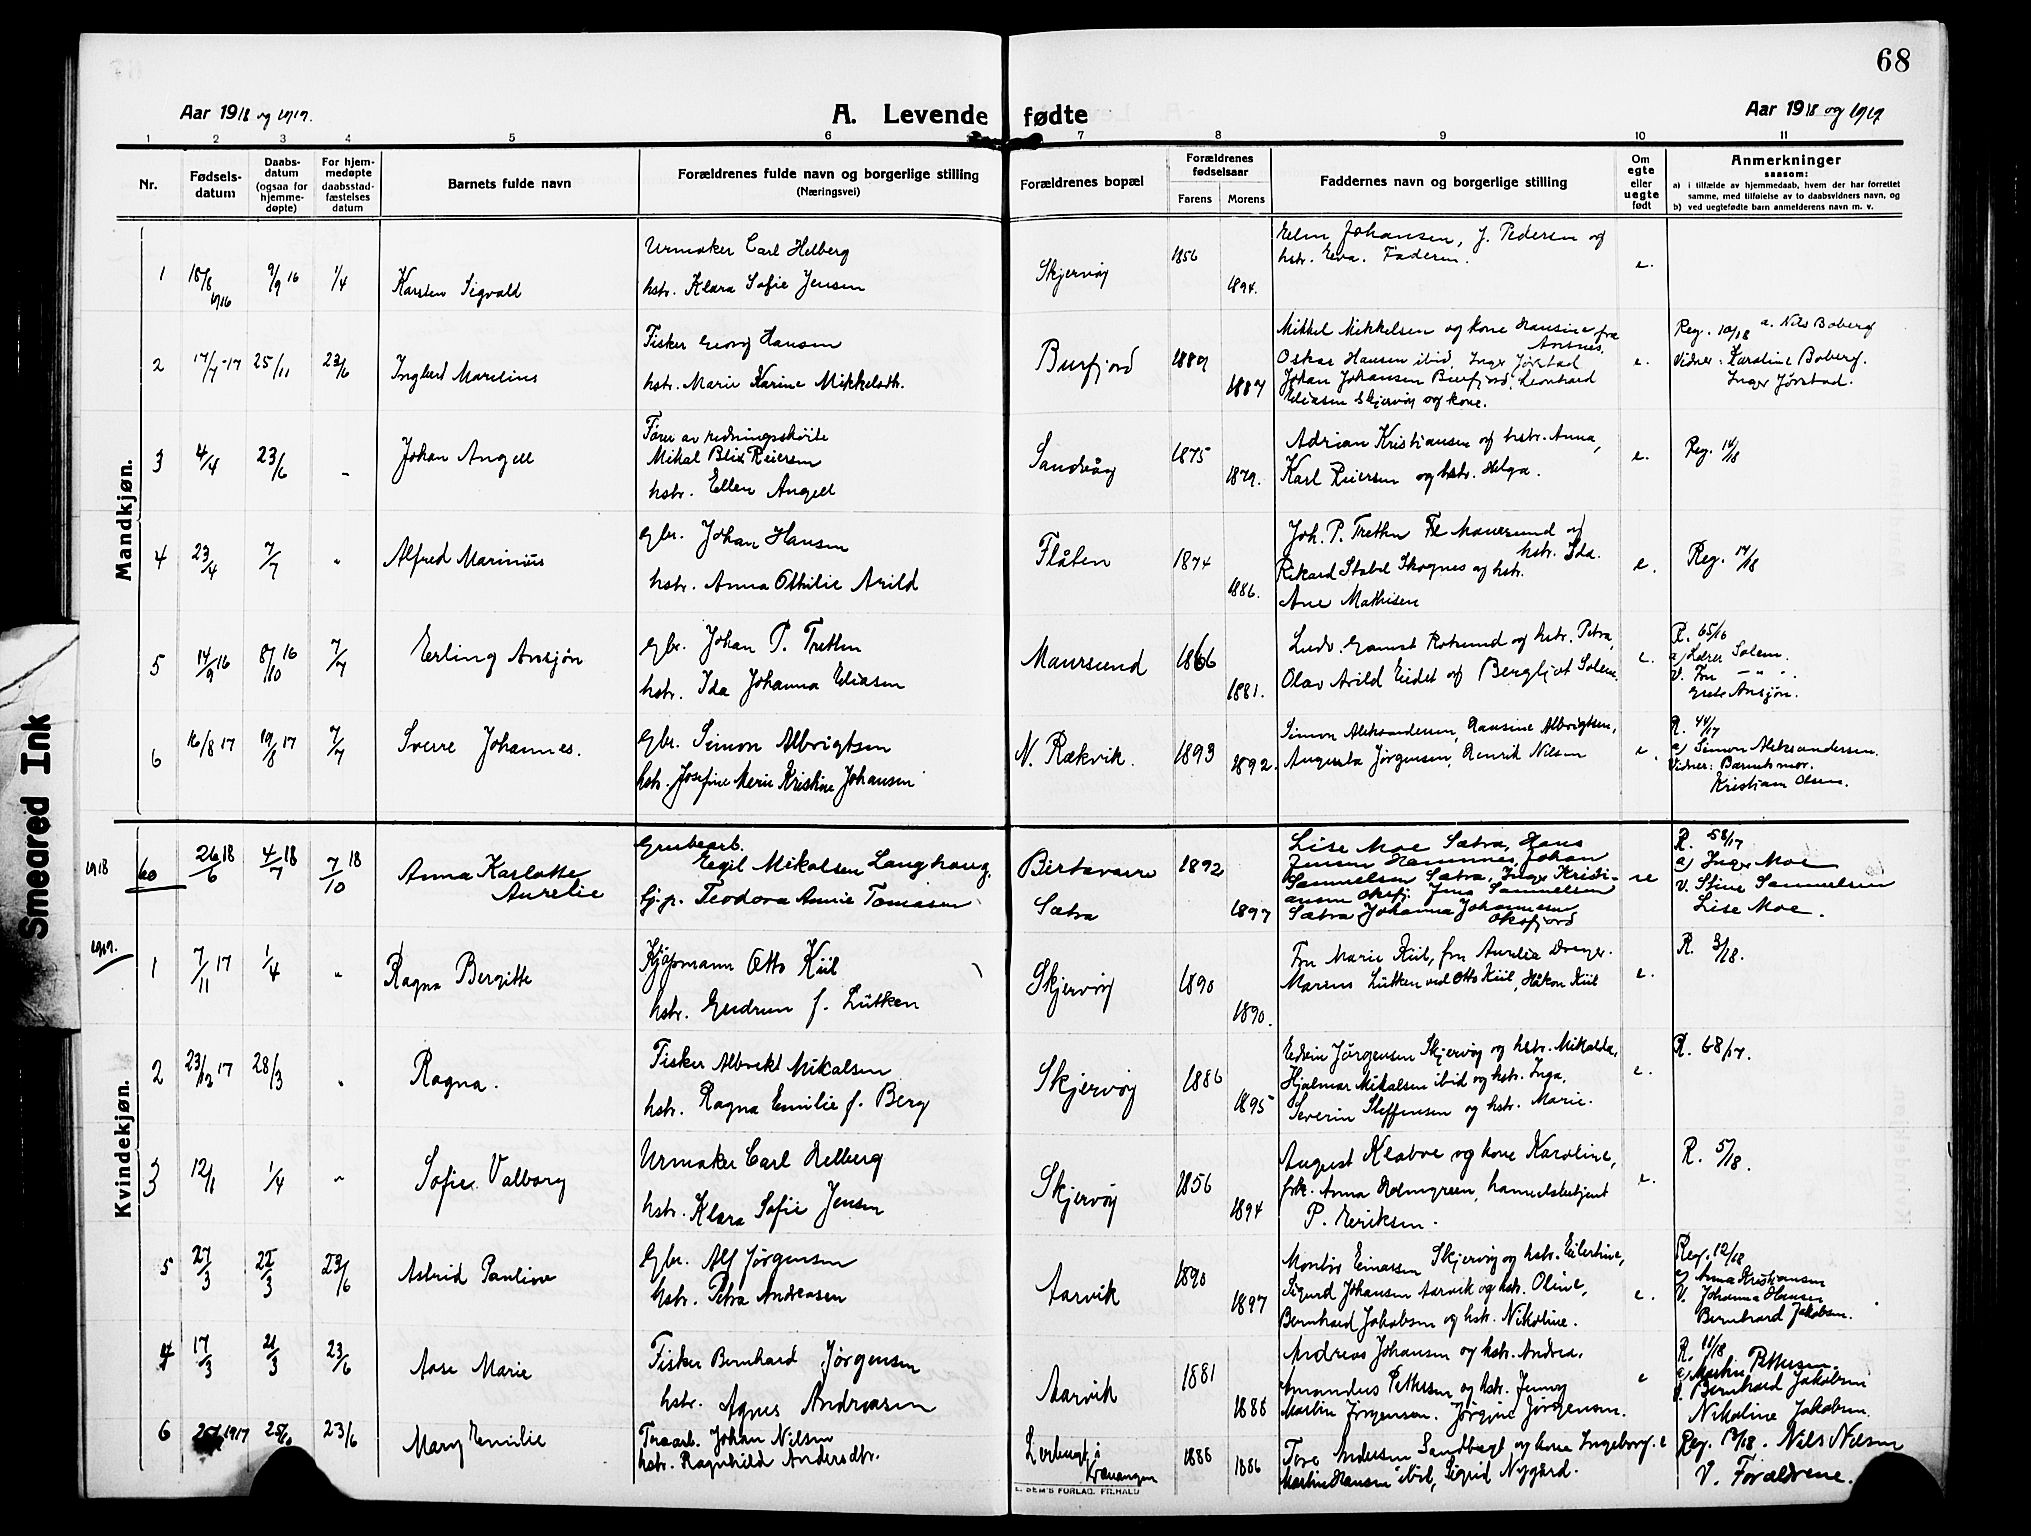 68
Aar 1918 og 1919.
A. Levende fødte
Aar 1918 og 1919
1 2 3 4 5 6 7 8 9 10 11
Nr.
Fødsels-
datum
Daabs-
datum
(ogsaa for
hjemme-
døpte)
For hjem-
medøpte
daabsstad-
fæstelses
datum
Barnets fulde navn
Forældrenes fulde navn og borgerlige stilling
(Næringsvei)
Forældrenes bopæl
Forældrenes
fødselsaar
Farens Morens
Faddernes navn og borgerlige stilling
Om
egte
eller
uegte
født
Anmerkninger
saasom:
a) i tilfælde av hjemmedaab, hvem der har forrettet
samme, med tilføielse av to daabsvidners navn, og
b) ved uegtefødte barn anmelderens navn m. v.
Mandkjøn.
1 18/8 1916 9/9 16 1/4 Karsten Sigvald
Urmaker Carl Helberg
hstr. Klara Sofie Jensen
Skjervøy 1856 1894.
Johansen, J. Pedersen og
hstr. Eva. Faderen.
e.
2 17/7-17 25/11 23/6 Ingbert Marelius
Fisker Georg Hansen
hstr. Marie Karine Mikkelsdtr.
Burfjord 1889 1887
Mikkel Mikkelsen og kone Hansine fra
Ansnes,
Oskar Hansen ibid, Inger Jørstad
Johan Johansen Burfjord, Leonhard
Eliasen Skjervøy og kone.
e.
Reg. 10/18 a. Nils Boberg
Vidner: Karoline Boberg.
Inger Jørstad.
3 4/4 23/6 - Johan Angell
Fører av redningsskøite
Mikal Blix Reiersen
hstr. Ellen Angell
Sandvåg 1875 1879.
Adrian Kristiansen og hstr. Anna,
Karl Reiersen og hstr. Helga.
e.
Reg. 14/18
4 23/4 7/7 " Alfred Marinius
Gbr. Johan Hansen
hstr. Anna Othilie Arild
Flåten 1874 1886.
Joh. P. Tretten Maursund og
hstr. Ida.
Rikard Stabel Skognes og hstr.
Ane Mathisen
e.
Reg. 17/18
5 14/9 16 8/10 16 7/7 Erling Ansjøn
Gbr. Johan P. Tretten
hstr. Ida Johanna Eliasen
Maursund 1866 1881.
Ludv. Gamst Rotsund og hstr. Petra,
Olav Arild Eidet og Bergljot Solem.
e.
R. 65/16
a) Lærer Solem.
V. Fru - " -
Grete Ansjøn.
6 16/8 17 19/8 17 7/7 Sverre Johannes.
Gbr. Simon Albrigtsen
hstr. Josefine Marie Kristine Johansen
N. Rækvik. 1893 1892.
Simon Aleksandersen, Hansine Albrigtsen,
Augusta Jørgensen, Henrik Nilsen
e.
R. 44/17
a) Simon Aleksandersen.
Vidner: Barnets mor.
Kristian Olsen.
Kvindekjøn.
1918 60 26/6 18 4/7 18 7/10 18 Anna Karlotte
Aurelie
Grubearb.
Egil Mikalsen Langhaug.
Gj. p. Teodora Annie Tomasen
Birtavarre
Sætra
1892 1897
Lise Moe Sætra, Hans
Jensen Hamnnes, Johan
Samuelsen Sætra, Inger Kristi-
ansen Oksfj. Jens Samuelsen
Sætra Johanna Johannesen
Oksfjord
ue
R. 58/17
a) Inger Moe
V. Stine Samuelsen
Lise Moe.
1919. 1 7/11 17 1/4 " Ragna Bergitte
Kjøpmann Otto Kiil
hstr. Gudrun f. Lütken
Skjervøy 1890 1890.
Fru Marie Kiil, fru Aurelia Dreyer.
Marius Lütken ved Otto Kiil, Håkon Kiil
e.
R. 3/18.
2 23/12 17 28/3 " Ragna.
Fisker Albrekt Mikalsen
hstr. Ragna Emilie f. Berg
Skjervøy 1886 1895
Edvin Jørgensen Skjervøy og hstr. Mikalda,
Hjalmar Mikalsen ibid og hstr. Inga,
Severin Steffensen og hstr. Marie.
e.
R. 68/17.
3 12/1 1/4 " Sofie Valborg
Urmaker Carl Helberg
hstr. Klara Sofie Jensen
Skjervøy 1856 1894
August Klæboe og kone Karoline,
frk. Anna Holmgreen, handelsbetjent
P. Eriksen.
e.
R. 5/18.
5 27/3 22/3 23/6 Astrid Pauline
Gbr. Alf Jørgensen
hstr. Petra Andreasen
Aarvik 1890 1897
Einarsen Skjervøy og hstr. Eilertine,
Sigurd Johansen Aarvik og hstr. Oline,
Bernhard Jakobsen og hstr. Nikoline.
e.
Reg. 12/18
a) Anna Kristiansen
V. Johanna Hansen
Bernhard Jakobsen.
4 17/3 21/3 23/6 Aase Marie
Fisker Bernhard Jørgensen
hstr. Agnes Andreasen
Aarvik 1881 1888
Andreas Johansen og hstr. Andrea.
Amandus Pettersen og hstr. Jenny
Martin Jørgensen. Jørgine Jørgensen.
e
R. 11/18
a) Martin Pettersen.
V. Bernhard Jakobsen
Nikoline Jakobsen.
6 1917 23/6 Mary Emilie
Johan Nilsen
hstr. Ragnhild Andersdtr.
Kvænangen 1888 1886
Tore Andersen Sandbugt og kona Ingeborg.
Martin Hansen ibid, Sigrid Nygård.
e
Reg. 13/18. Nils Nilsen
V. Forældrene.
E. SEM'S FORLAG, FR.HALD
Smeared Ink